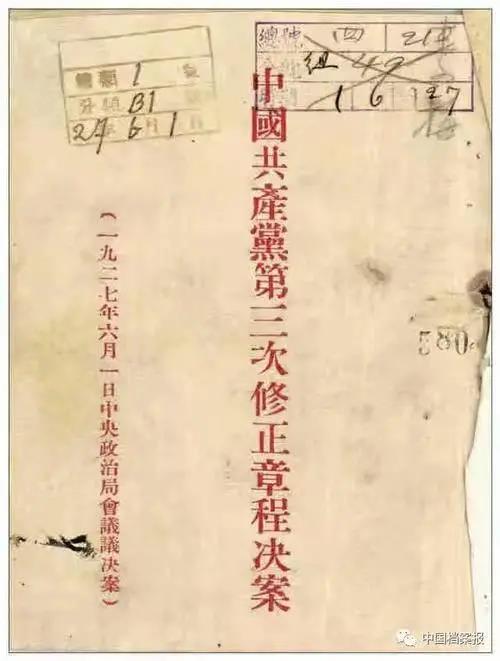 中國共產黨第三次修正章程决案
（一九二七年六月一日中央政治局會議議决案）
總號 四
組 42
1 6 127
總類 1
分類 B1
27 6 1
580
中国档案报